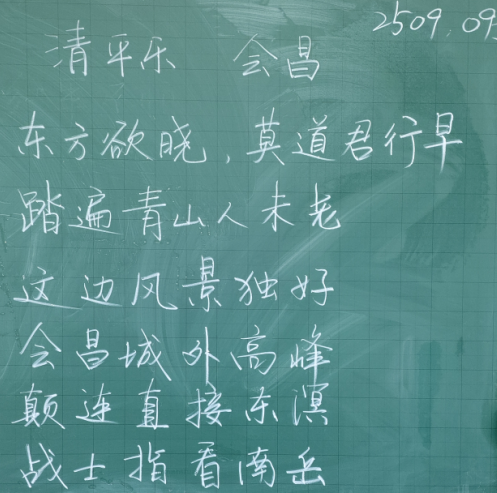 2509.09
清平乐 会昌
东方欲晓,莫道君行早
踏遍青山人未老
这边风景独好
会昌城外高峰
颠连直接东溟
战士指看南岳